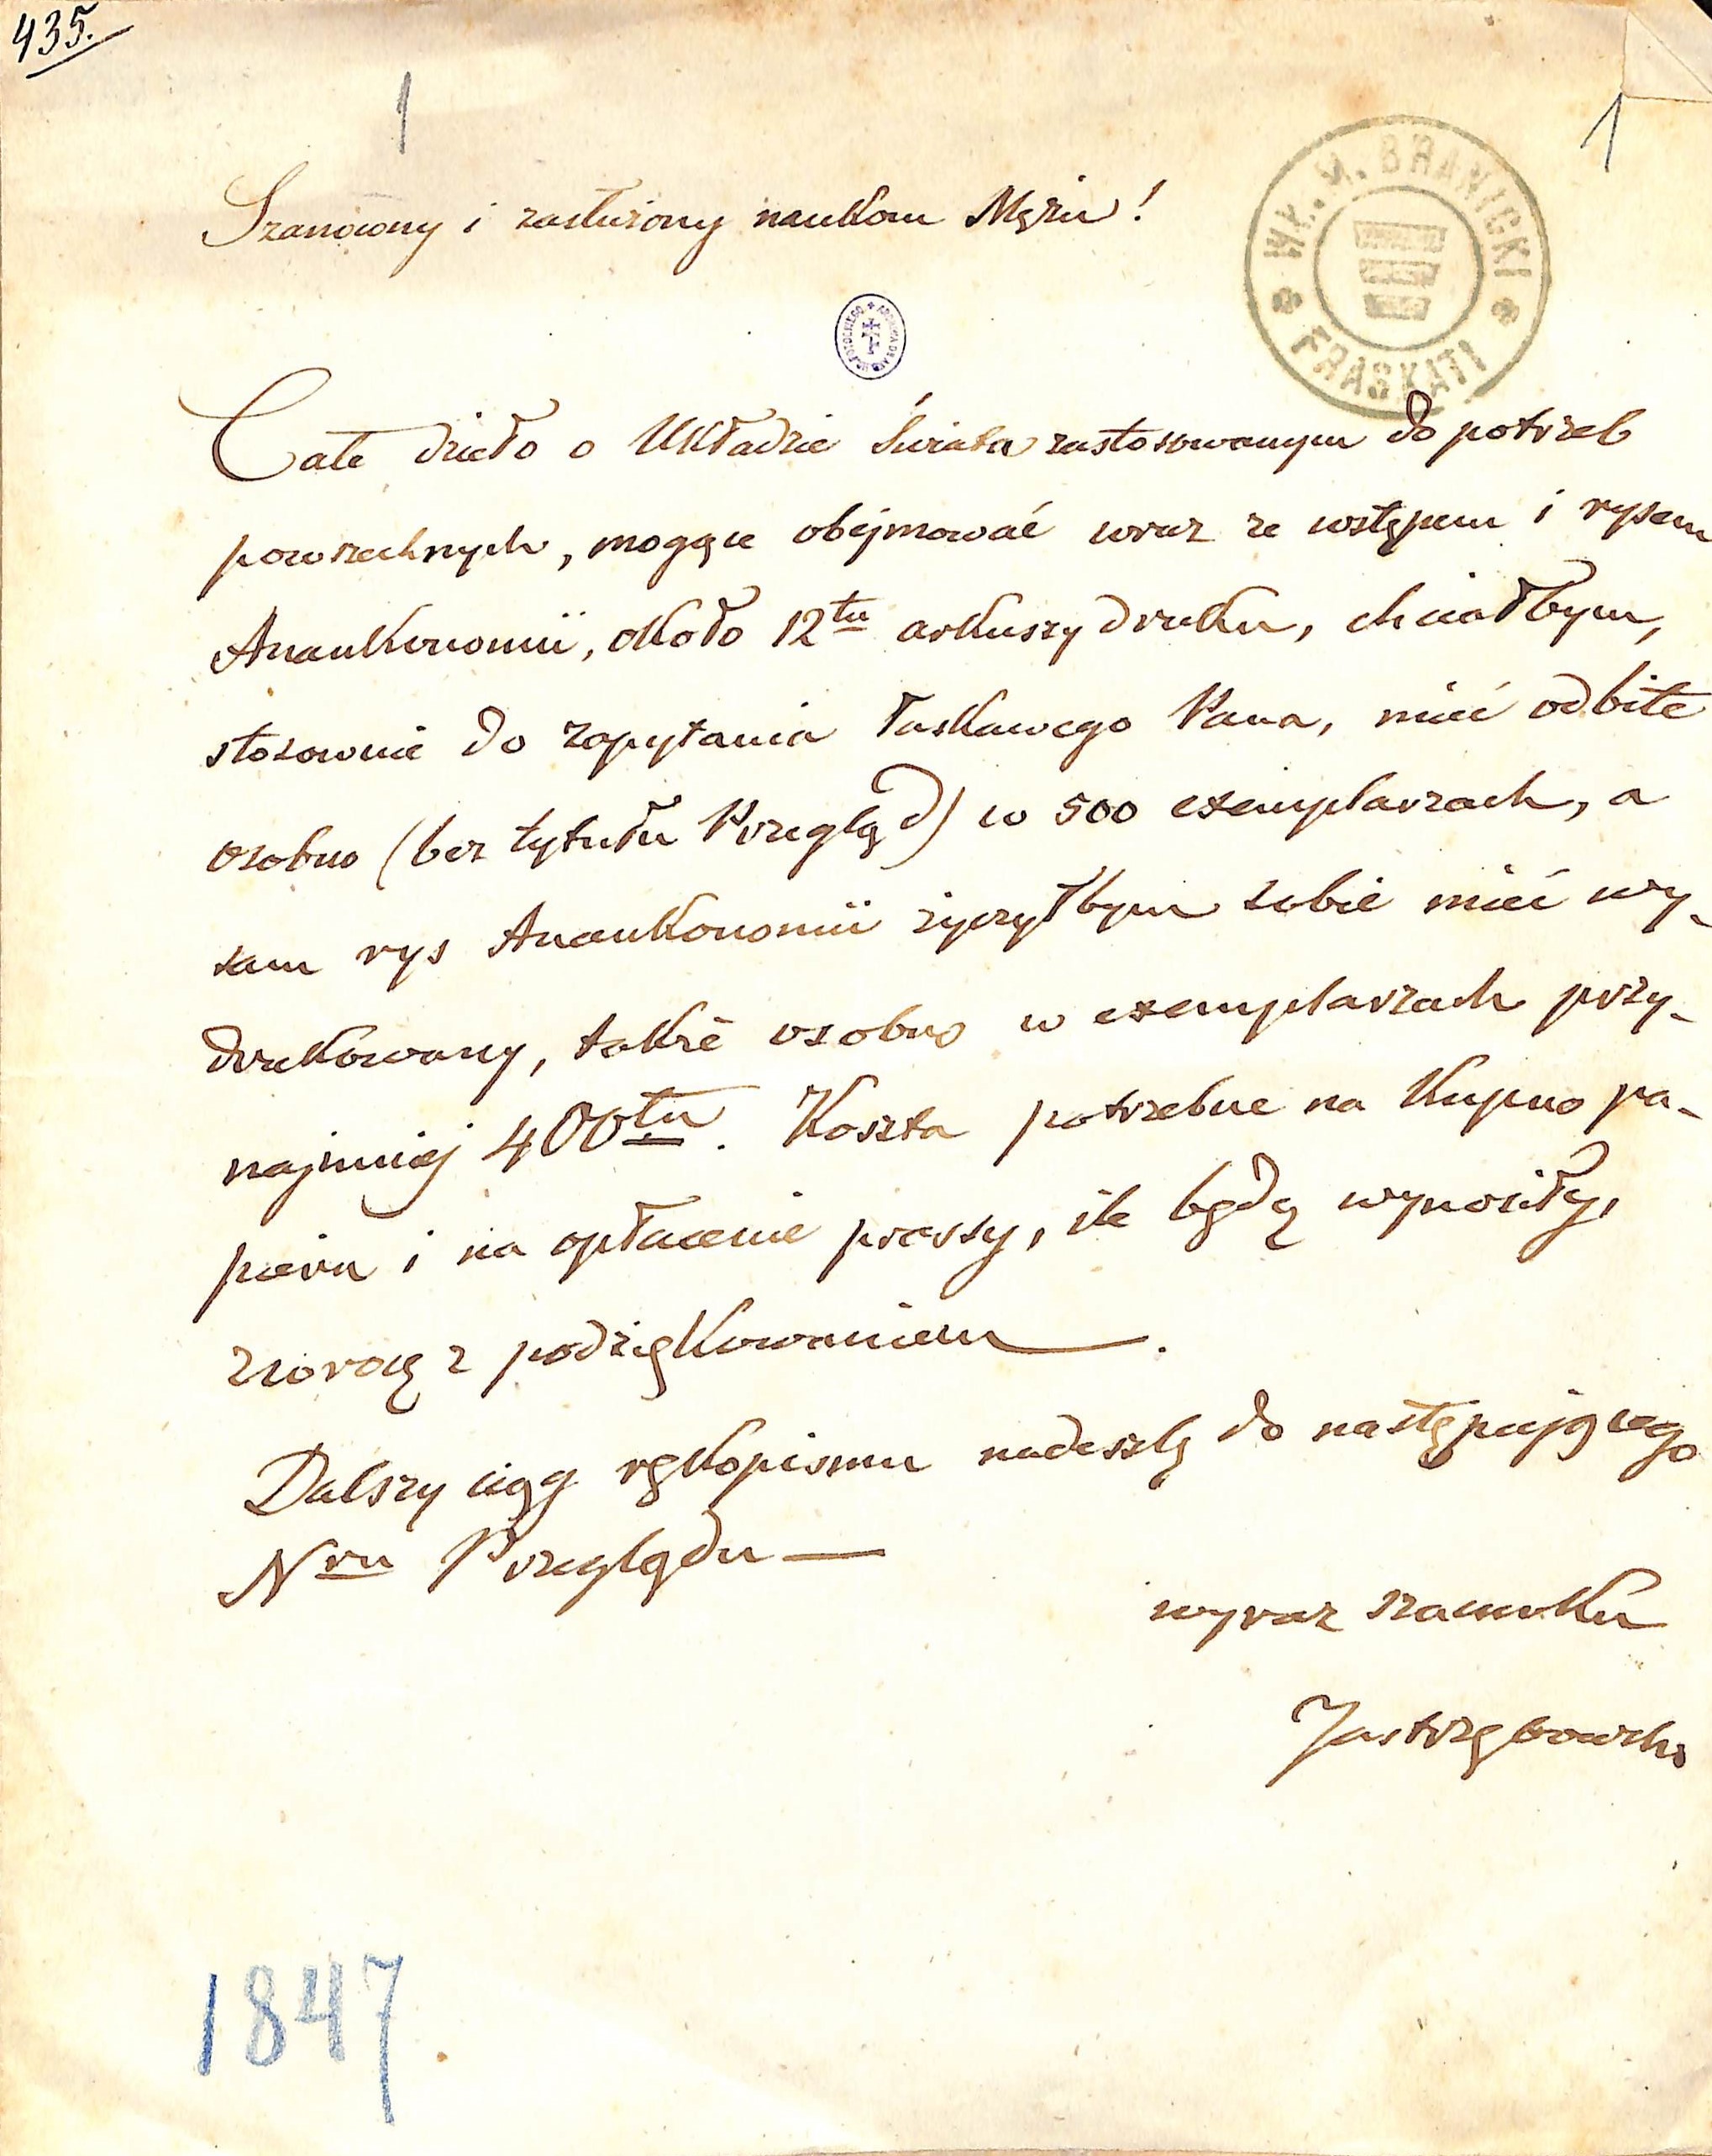 435.
1
1
WŁ. M. BRANICKI
FRASKATI
Szanowny i zasłużony naukom Mężu!
Całe dzieło o Układzie Świata zastosowanym do potrzeb
powszechnych, mogące obejmować wraz ze wstępem i rysem
Anankonomii, około 12tu arkuszy druku, chciałbym,
stosownie do zapytania łaskawego Pana, mieć odbite
osobno (bez tytułu Przegląd) w 500 exemplarzach, a
sam rys Anankonomii życzyłbym sobie mieć wy-
drukowany, także osobno w exemplarzach przy-
najmniéj 400tu. Koszta potrzebne na kupno pa-
pieru i na opłacenie prassy, ile będą wynosiły,
zwrócę z podziękowaniem.
Dalszy ciąg rękopismu nadeszlę do następującego
Nru Przeglądu —
wyraz szacunku
Jastrzębowski
1847.